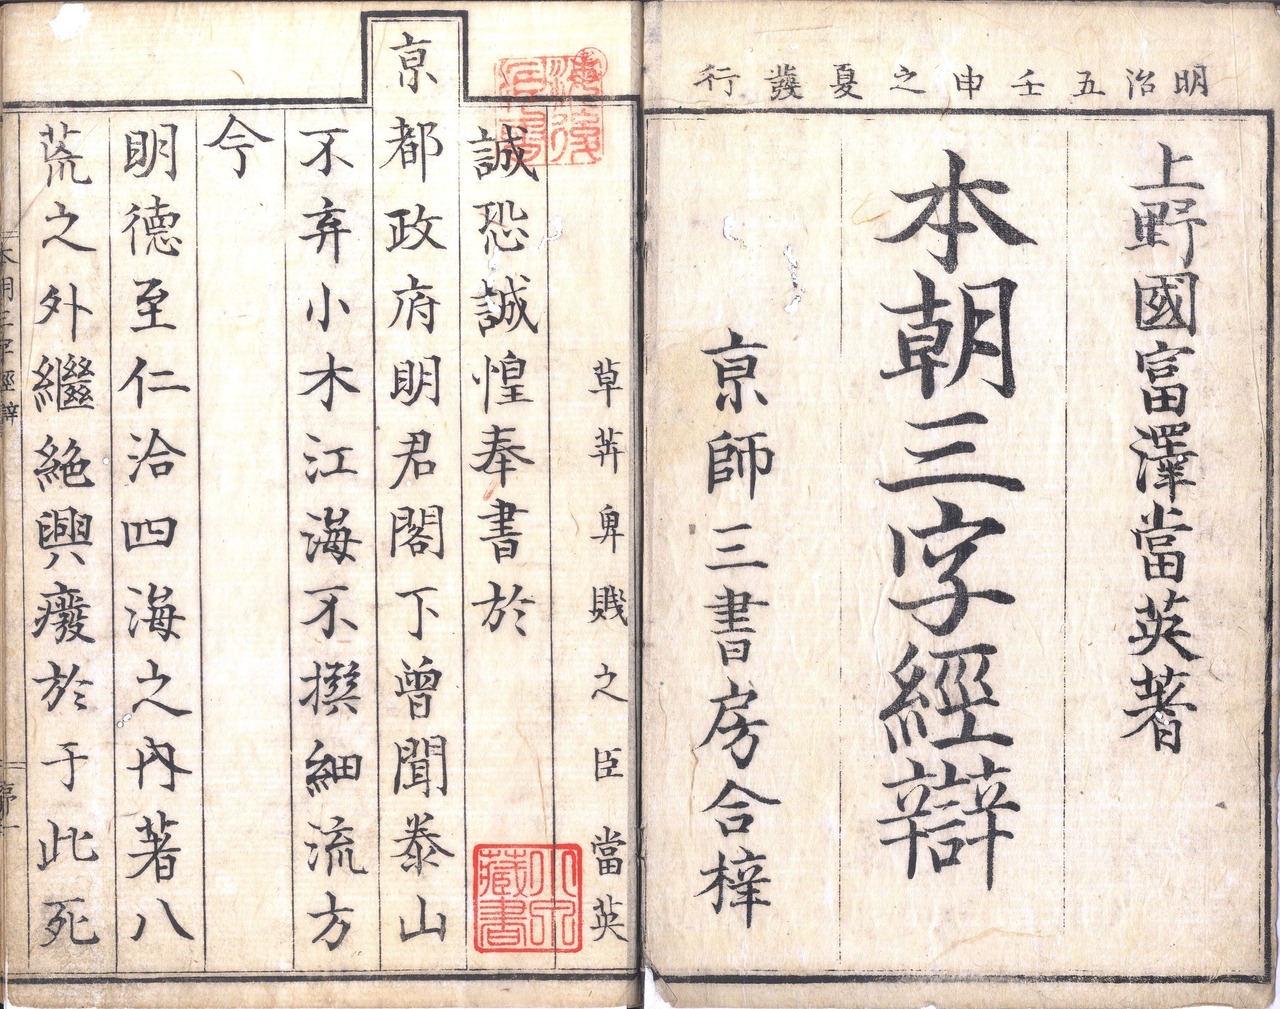 明治五壬申之夏發行
上野國富澤當英著
本朝三字經辯
亰師三書房合梓
草莾卑賤之臣當英
誠恐誠惶奉書於
亰都政府明君閣下曾聞泰山
不弃小木江海不撰細流方
今
明德至仁洽四海之內著八
荒之外繼絶興癈於于此死
藏書